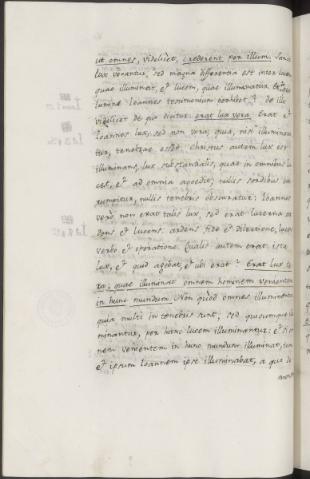 ut omnes, videlicet, crederent per illum. Sancti
lux vocantur, sed magna differentia est inter lucem
quae illuminat, et lucem, quae illuminatur. De quo
lumine Ioannes testimonium perhibet? de illo
videlicet de quo dicitur: erat lux vera. Erat et
Ioannes lux, sed non vera; quia, nisi illuminare-
tur, tenebrae esset. Christus autem lux est
illuminans, lux substantialis, quae in omnibus
est, et ad omnia accedit; nullis sordibus
nullis tenebris obscuratur: Ioannes
verò non erat talis lux, sed erat lucerna ar-
dens et lucens. ardens fide et dilectione, lucens
verbo et operatione. Qualis autem erat ista
lux, et quid agebat, et ubi erat? Erat lux ve-
ra, quae illuminat omnem hominem venientem
in hunc mundum. Non quòd omnes illuminantur
quia multi in tenebris sunt; sed quicumque
minantur, per hanc lucem illuminantur: et si om-
nem venientem in hunc mundum illuminat,
et ipsum Ioannem ipse illuminabat, a quo se